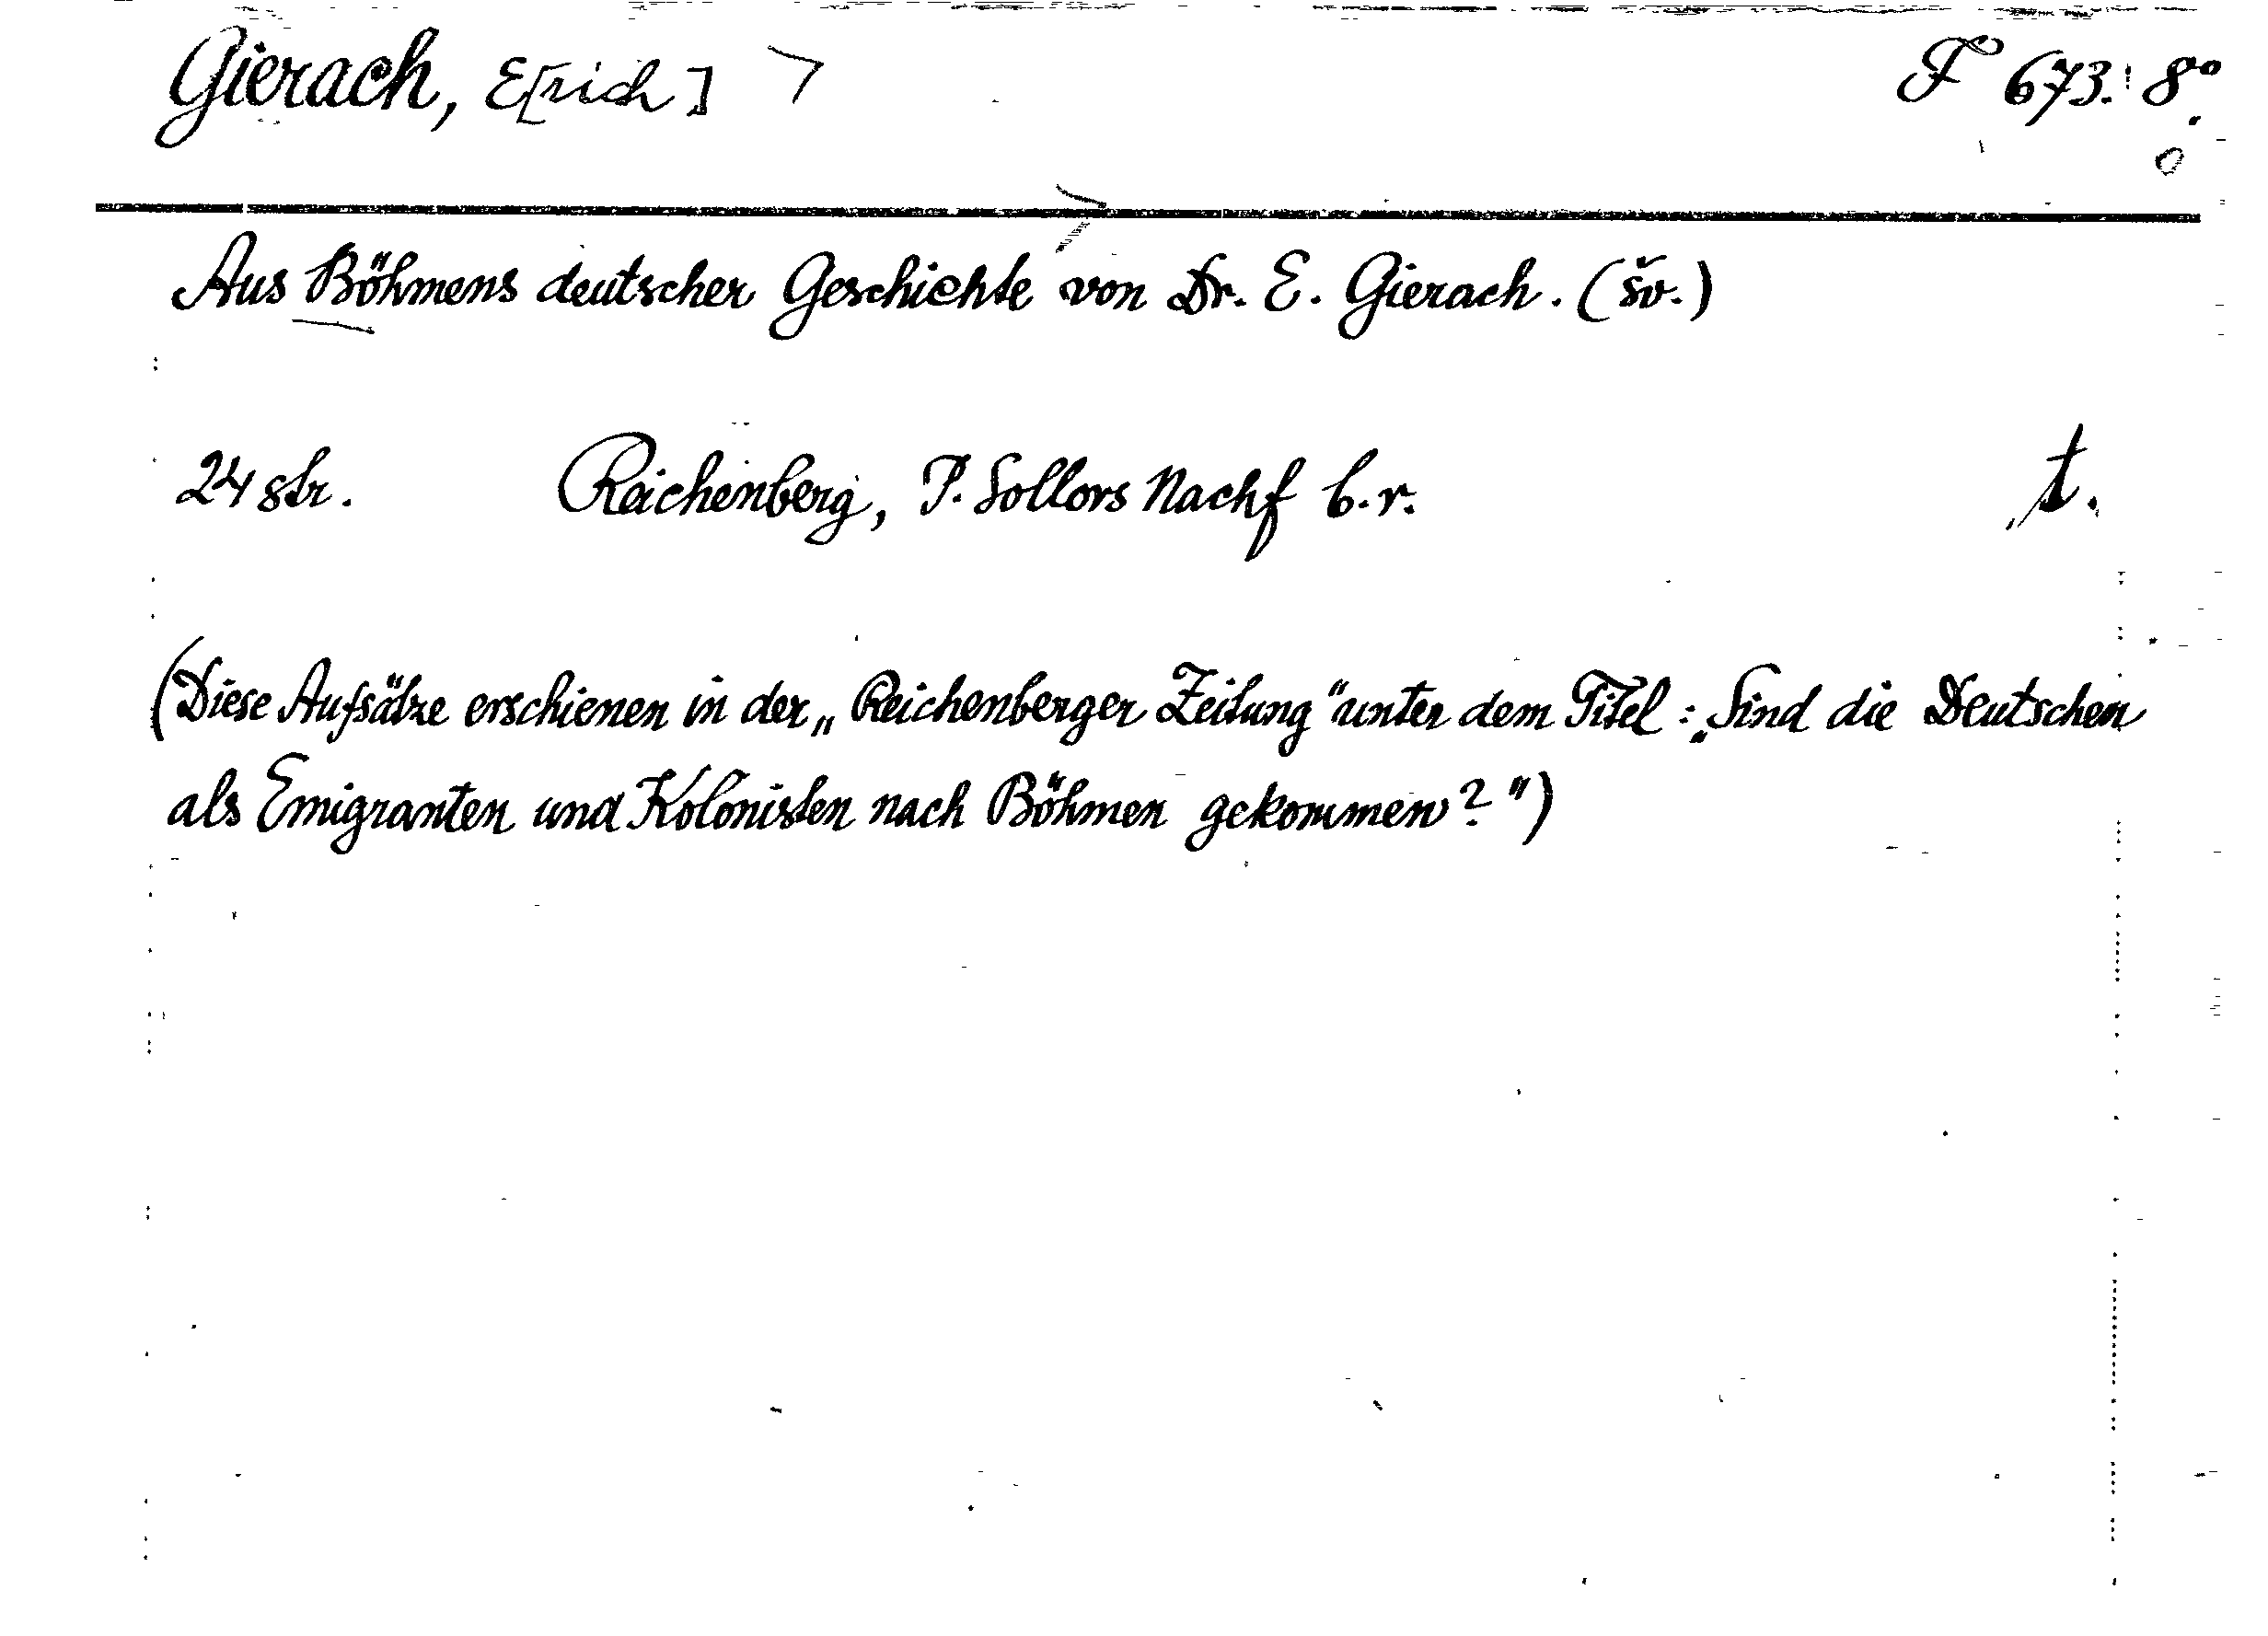 Gierach, E[rich] F 673. 8°
Aus Böhmens deutscher Geschichte von Dr. E. Gierach. (šv.)
24 str. Reichenberg, P. Sollors Nachf b.r. t.
(Diese Aufsätze erschienen in der „Reichenberger Zeitung" unter dem Titel: „Sind die Deutschen
als Emigranten und Kolonisten nach Böhmen gekommen?")